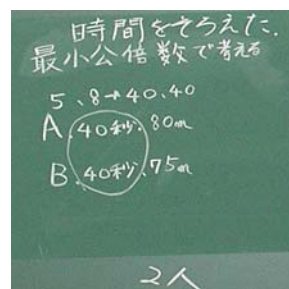 時間をそろえた.
最小公倍数で考える
5、8→40、40
A 40秒、80m
B 40秒、75m
2人